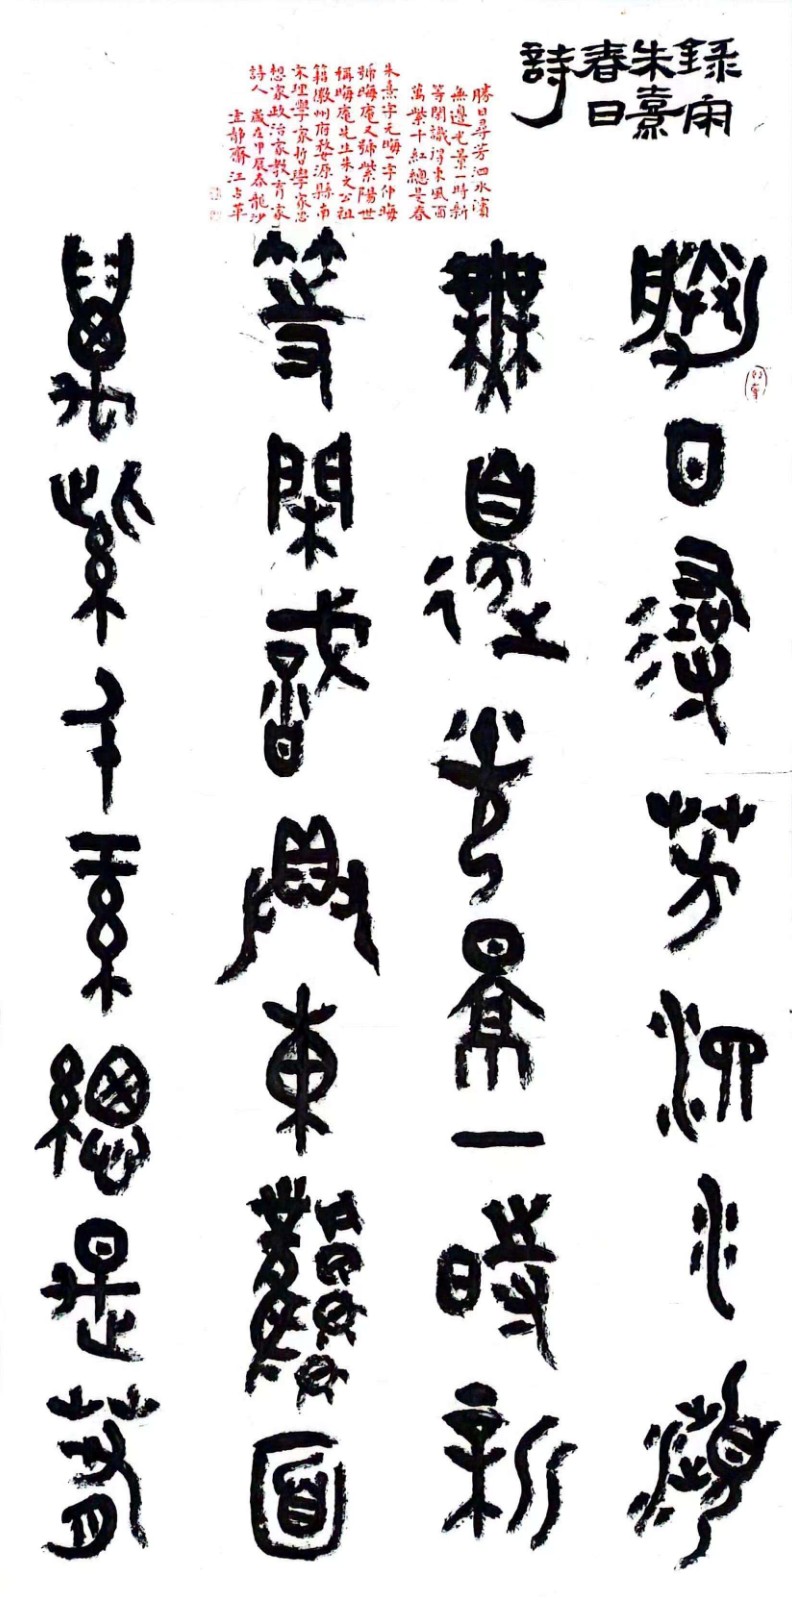 錄
朱熹
春日
詩
勝日尋芳泗水濱
無邊光景一時新
等閑識得東風面
萬紫千紅總是春
朱熹字元晦一字仲晦
號晦庵又號紫陽世
稱晦庵先生朱文公祖
籍徽州府婺源縣南
宋理學家哲學家思
想家政治家教育家
詩人 歲在甲辰春龍沙
齋江
勝日尋芳泗水濱
無邊光景一時新
等閑識得東風面
萬紫千紅總是春